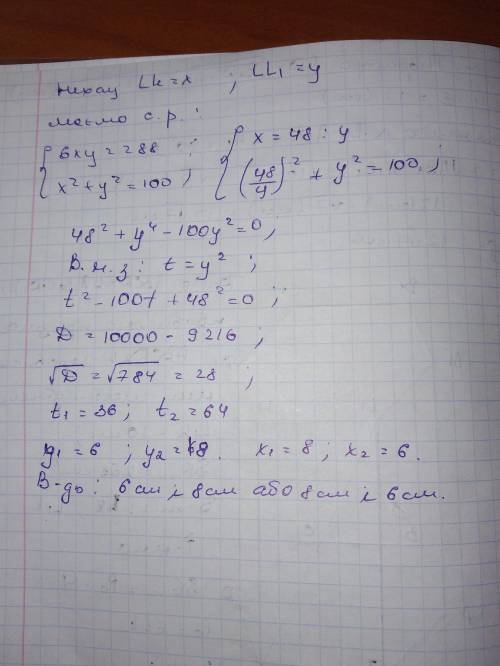 Нехай LK = x ; LL₁ = y
маємо с.р. :
{ 6xy = 288 ; x² + y² = 100 ; { x = 48 : y ; (48/y)² + y² = 100 ;
48² + y⁴ - 100y² = 0 ;
В.н.з : t = y² ;
t² - 100t + 48² = 0 ;
D = 10000 - 9216 ;
√D = √784 = 28 ;
t₁ = 36 ; t₂ = 64
y₁ = 6 ; y₂ = 8 . x₁ = 8 ; x₂ = 6 .
В-дь : 6 см і 8 см або 8 см і 6 см.